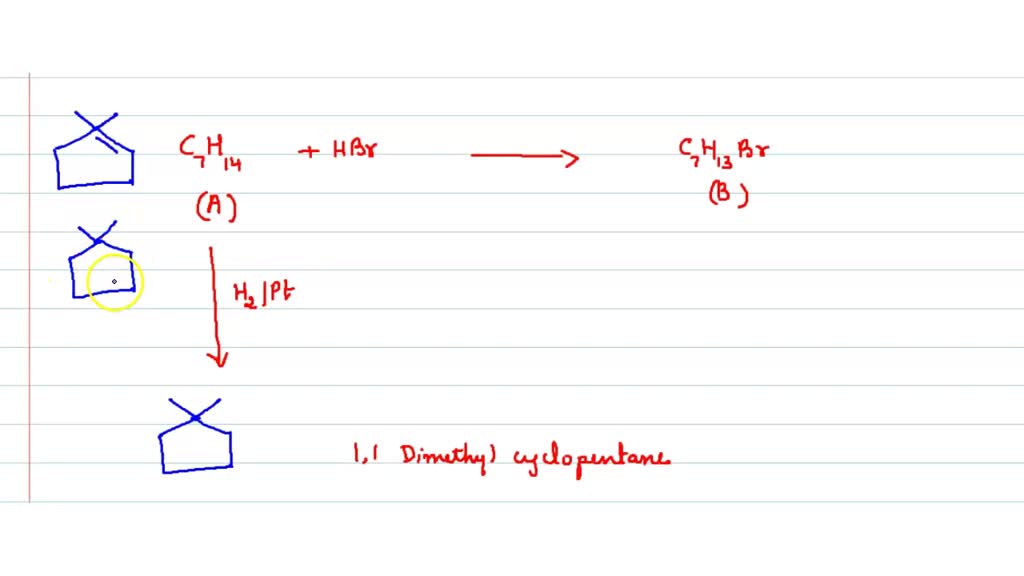 C₇H₁₄ + HBr → C₇H₁₃Br
(A) (B)
H₂/Pt
1,1 Dimethyl cyclopentane